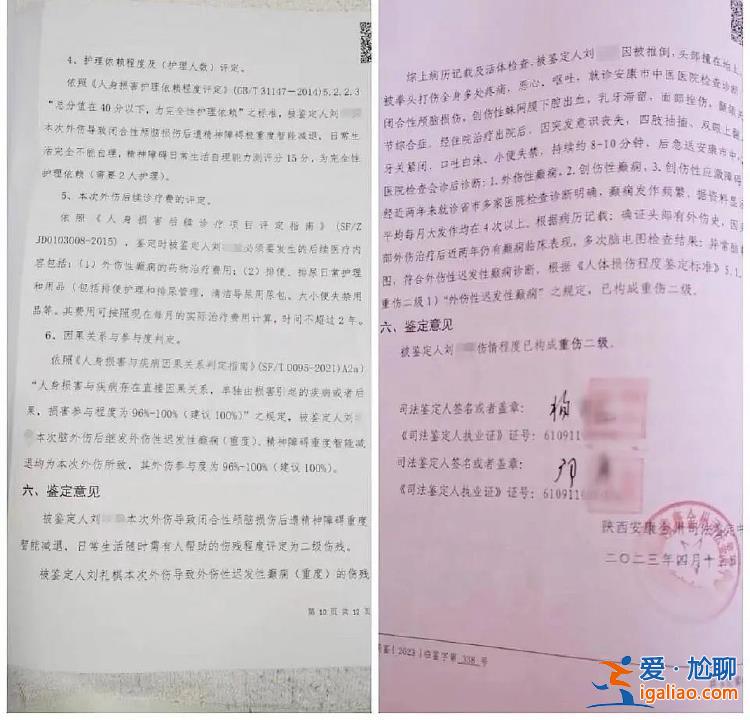 4、护理依赖程度及（护理人数）评定。
依照《人身损害护理依赖程度评定》(GB/T31147—2014)5.2.2.3
“总分值在40分以下，为完全性护理依赖”之标准，被鉴定人刘
本次外伤导致闭合性颅脑损伤后遗精神障碍极重度智能减退，日常生
活完全不能自理，精神障碍日常生活自理能力测评分15分，为完全性
护理依赖（需要2人护理）。
5、本次外伤后续诊疗费的评定。
依照《人身损害后续诊疗项目评定指南》(SF/Z
JD0103008-2015)，鉴定时被鉴定人刘 必须要发生的后续医疗内
容包括：（1）外伤性癫痫的药物治疗费用；（2）排便、排尿日常护理
和用品（包括排便护理和排尿管理，清洁导尿用尿包、大小便失禁用
品等。其费用可按照现在每月的实际治疗费用计算，时间不超过2年。
6、因果关系与参与度判定。
依照《人身损害与疾病因果关系判定指南》(SF/T0095-2021)A2a)
“人身损害与疾病存在直接因果关系，单独由损害引起的疾病或者后
果，损害参与程度为96%-100%（建议100%）”之规定，被鉴定人刘
本次脑外伤后继发外伤性迟发性癫痫（重度）、精神障碍重度智能减
退均为本次外伤所致，其外伤参与度为96%-100%（建议100%）。
六、鉴定意见
被鉴定人刘 本次外伤导致闭合性颅脑损伤后遗精神障碍重度
智能减退，日常生活随时需有人帮助的伤残程度评定为二级伤残。
被鉴定人刘礼棋本次外伤导致外伤性迟发性癫痫（重度）的伤残
第10页共12页
综上病历记载及活体检查，被鉴定人刘 因被推倒，头部撞在地上
被拳头打伤全身多处疼痛，恶心，呕吐，就诊安康市中医医院检查诊断
闭合性颅脑损伤，创伤性蛛网膜下腔出血，乳牙滞留，面部挫伤，颞颌关
节综合症。经住院治疗出院后，因突发意识丧失，四肢抽搐，双眼上翻
牙关紧闭，口吐白沫，小便失禁，持续约8-10分钟，后急送安康市中
医院检查会诊后诊断：1.外伤性癫痫，2.创伤性癫痫，3.创伤性应激障碍
经近两年来就诊省市多家医院检查诊断明确，癫痫发作频繁，据资料显示
平均每月大发作均在4次以上。根据病历记载：确证头部有外伤史，因头
部外伤治疗后近两年仍有癫痫临床表现，多次脑电图检查结果：异常脑电
图，符合外伤性迟发性癫痫诊断，根据《人体损伤程度鉴定标准》5.1.
重伤二级1）“外伤性迟发性癫痫”之规定，已构成重伤二级。
六、鉴定意见
被鉴定人刘 伤情程度已构成重伤二级。
司法鉴定人签名或者盖章：
《司法鉴定人执业证》证号：610911
司法鉴定人签名或者盖章：
《司法鉴定人执业证》证号：610911
陕西安康金州司法鉴定中
二〇二三年四月十
鉴[2023]临鉴字第 338 号
爱·尬聊
igaliao.com